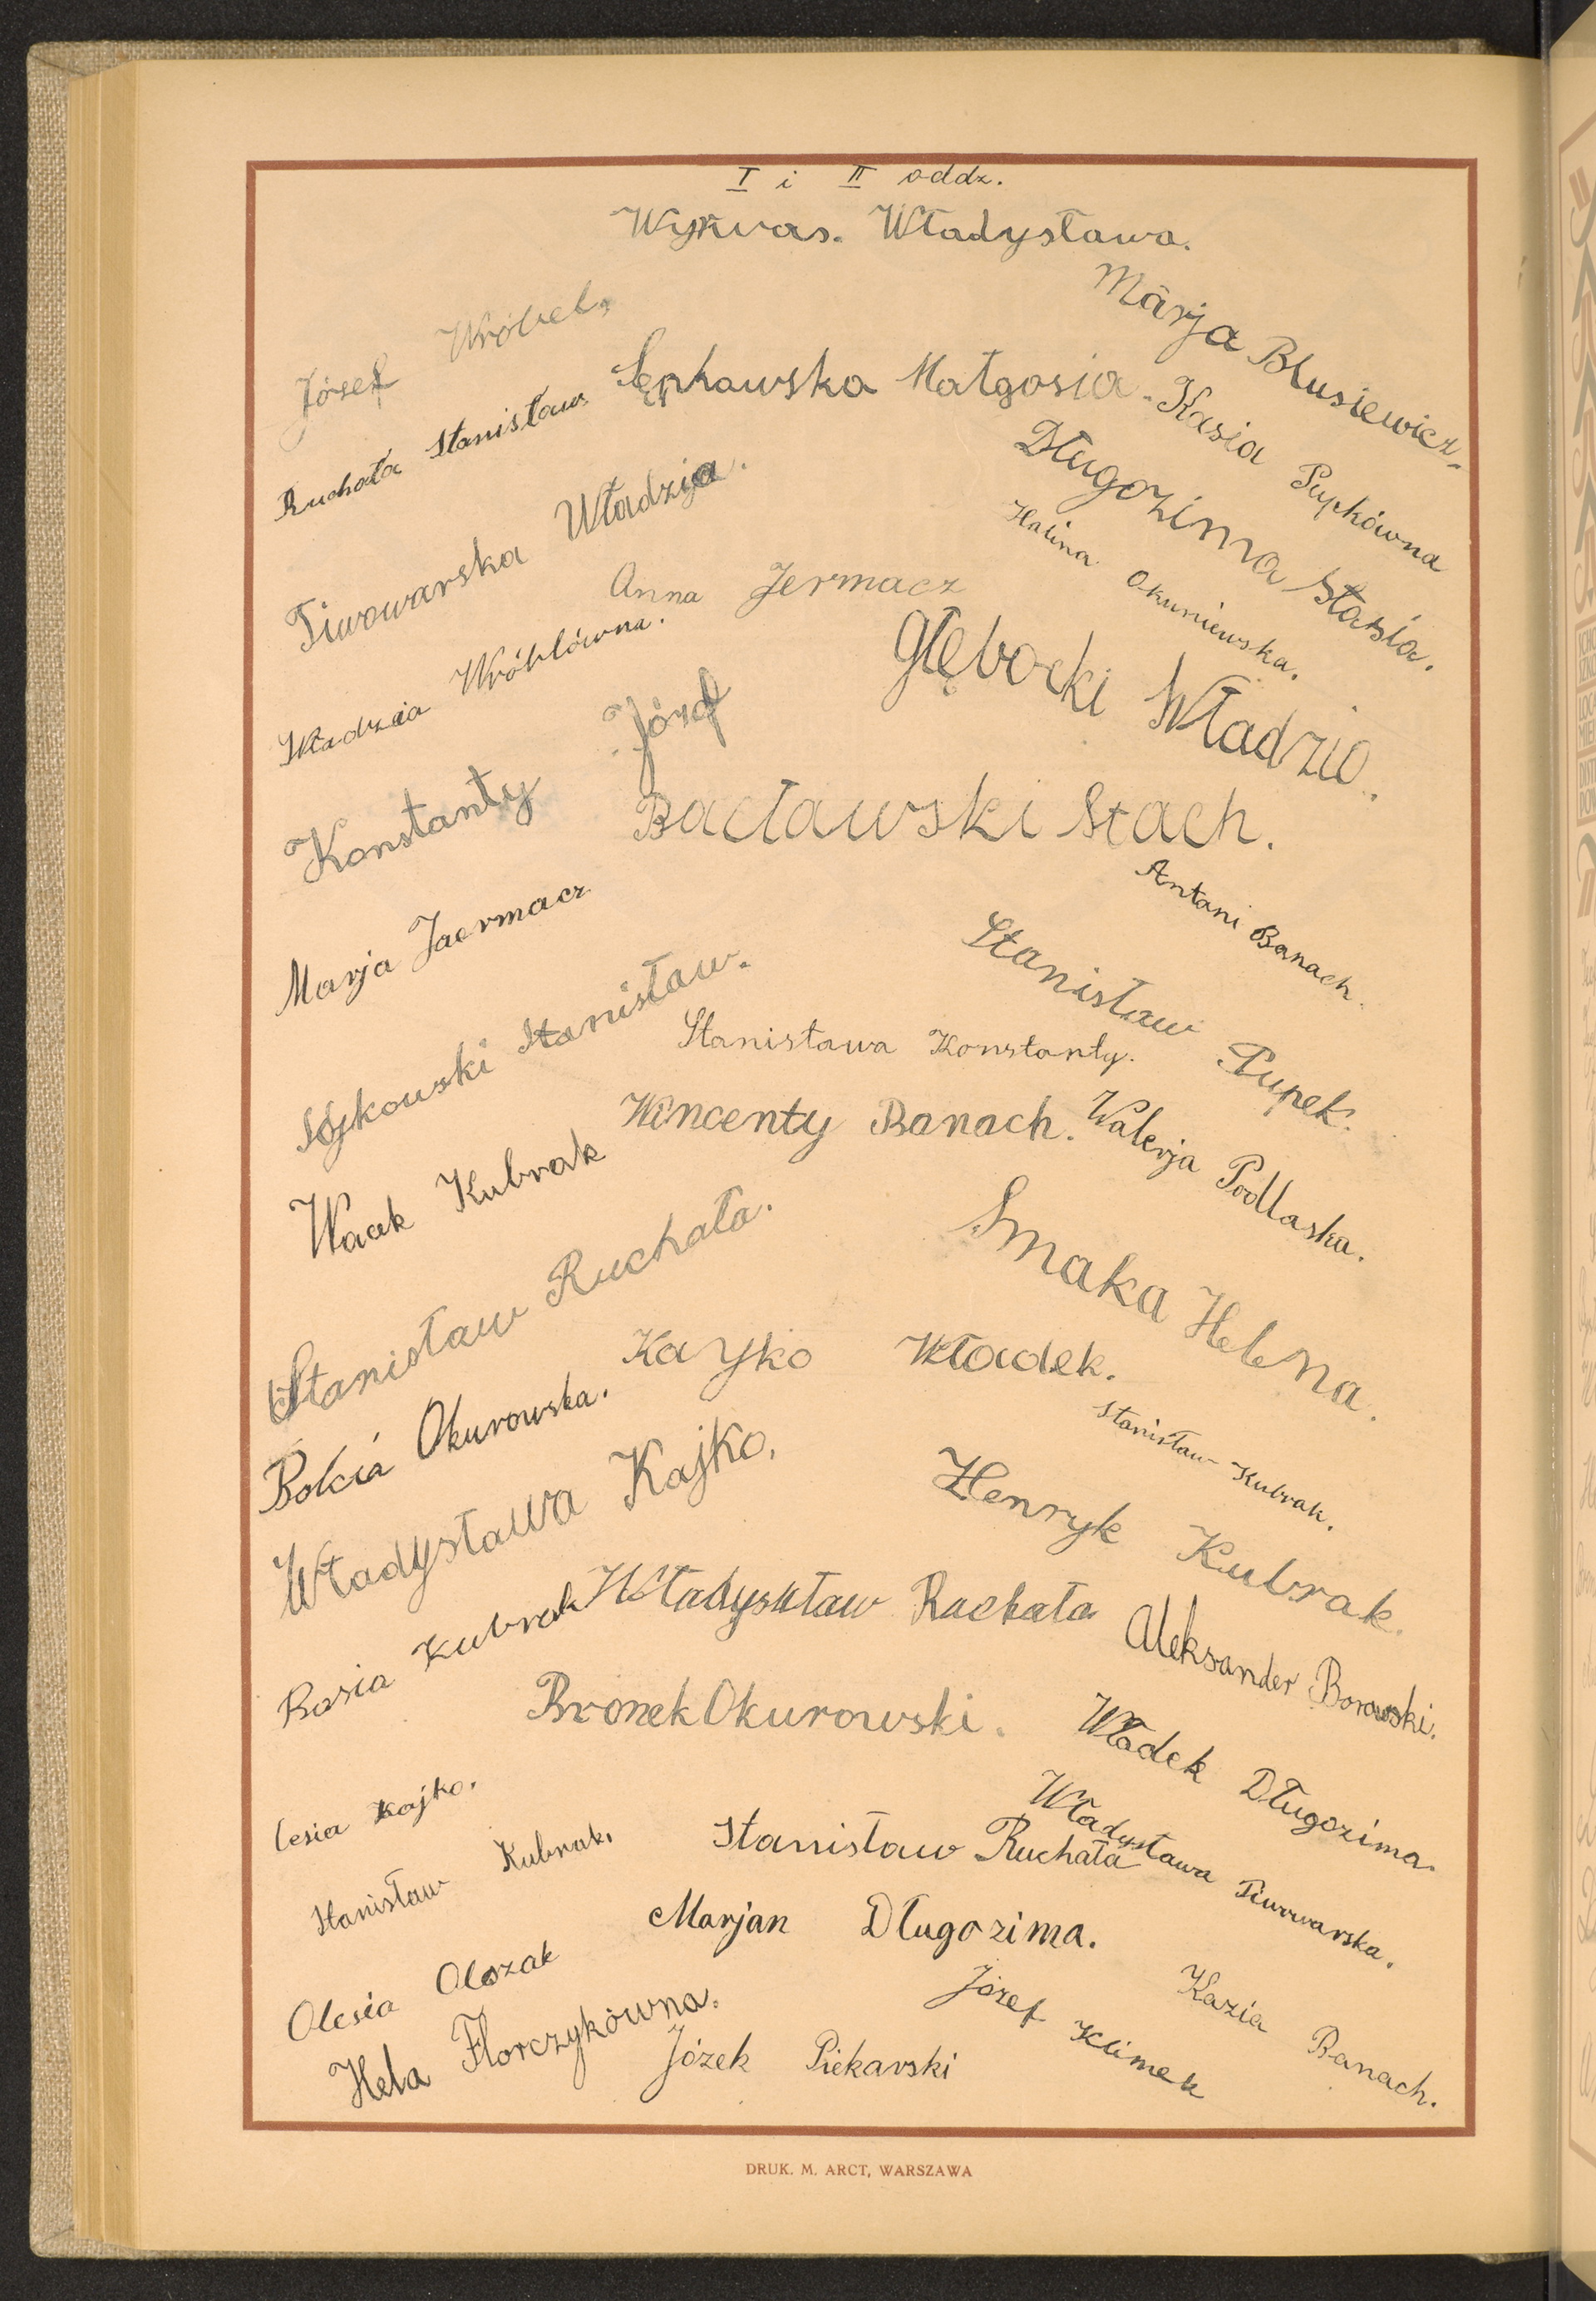 I i II oddz.
Wykwas. Władysława.
Józef Wróbel.
Marja Blusiewicz.
Ruchała Stanisław
Sępkowska Małgosia.
Kasia Pupkówna
Piwowarska Władzia.
Długozima Stasia.
Halina Okuniewska.
Anna Jermacz
Władzia Wróblówna.
Głębocki Władzio.
Konstanty Józef
Bacławski Stach.
Marja Jaermacz
Antoni Banach.
Stanisław Pupek.
Stanisław.
Stanisława Konstanty.
Wacek Kubrak
Wincenty Banach.
Walerja Podlaska.
Stanisław Ruchała.
Smaka Helena.
Bolcia Okurowska.
Kayko Władek.
Stanisław Kubrak.
Władysława Kajko.
Henryk Kubrak.
Basia Kubrak
Władysław Ruchała
Aleksander Borowski.
Bronek Okurowski.
Władek Długozima.
Cesia Kajko.
Władysława Piwowarska.
Stanisław Kubrak.
Stanisław Ruchała
Marjan Długozima.
Olesia Olszak
Józef Klimek
Kazia Banach.
Hela Florczykówna.
Józek Piekarski
DRUK. M. ARCT, WARSZAWA